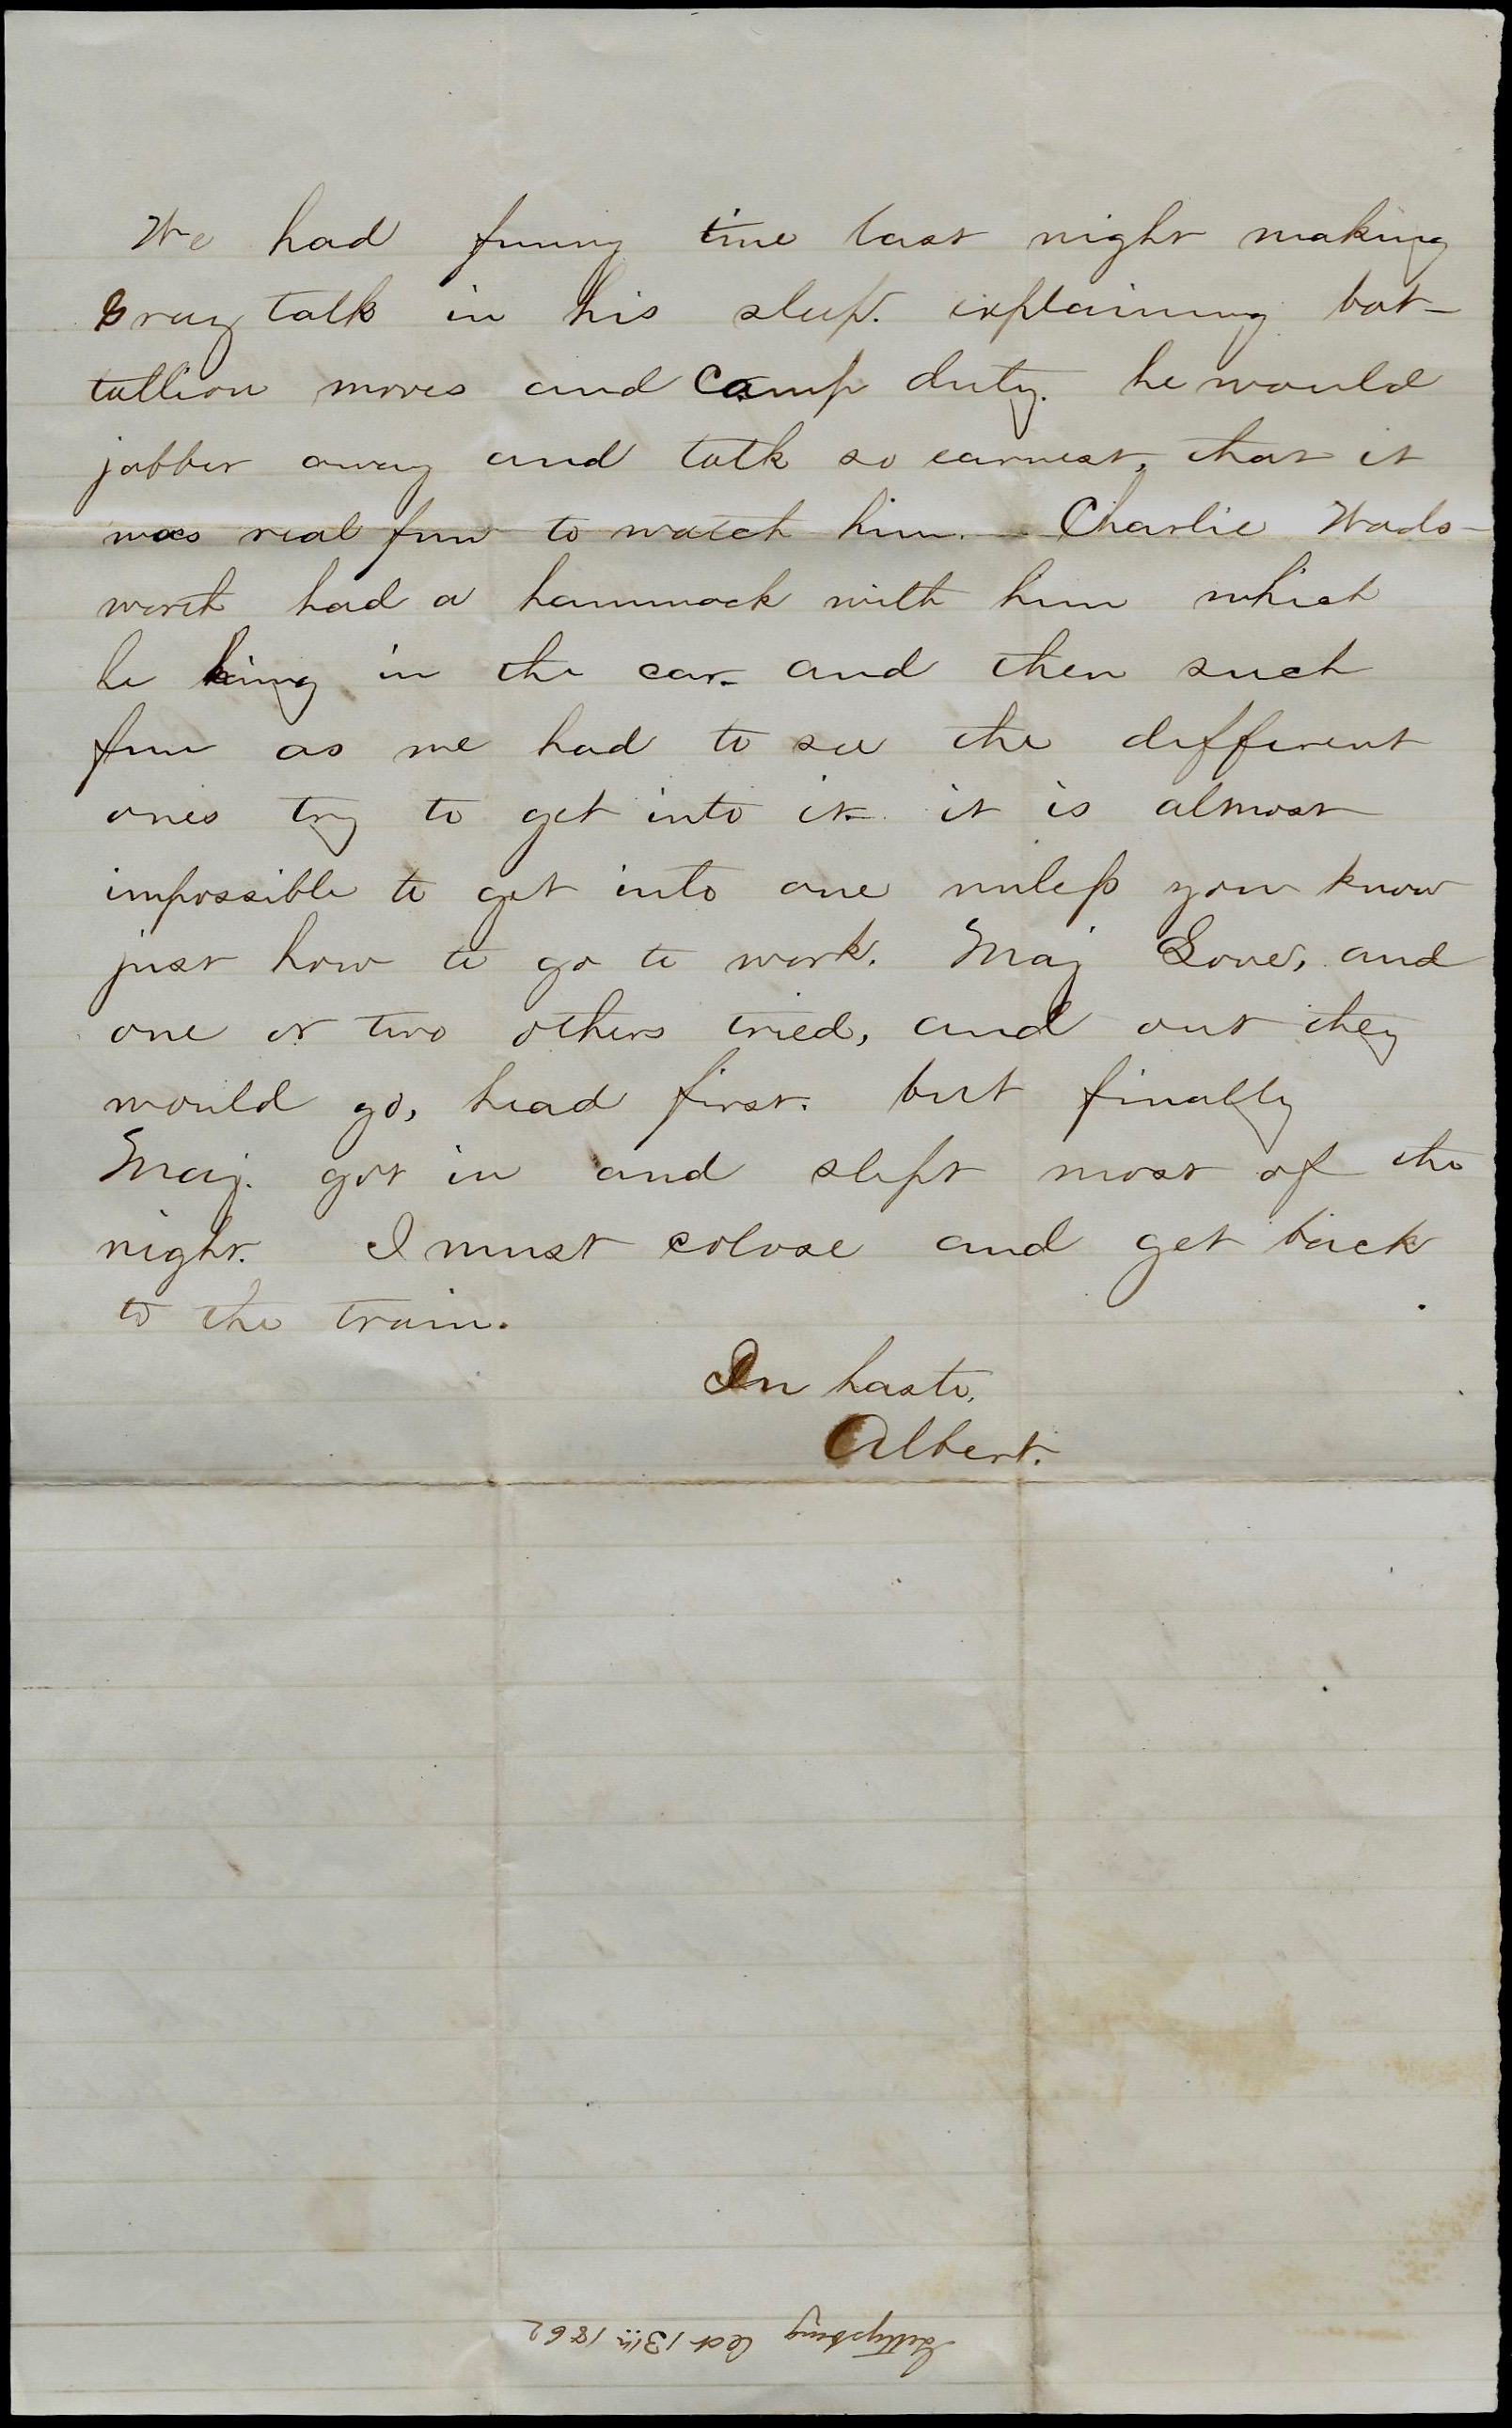 We had funny time last night making
Gray talk in his sleep. explaining bat-
tallion moves and Camp duty. he would
jabber away and talk so earnest, that it
was real fun to watch him. Charlie Wads-
worth had a hammock with him which
he hung in the car. and then such
fun as we had to see the different
ones try to get into it. it is almost
impossible to get into one unless you know
just how to go to work. Maj Love, and
one or two others tried, and out they
would go, head first. but finally
Maj. got in and slept most of the
night. I must colose and get back
to the train.
In haste,
Albert.
Gettysburg Oct 13th 1862